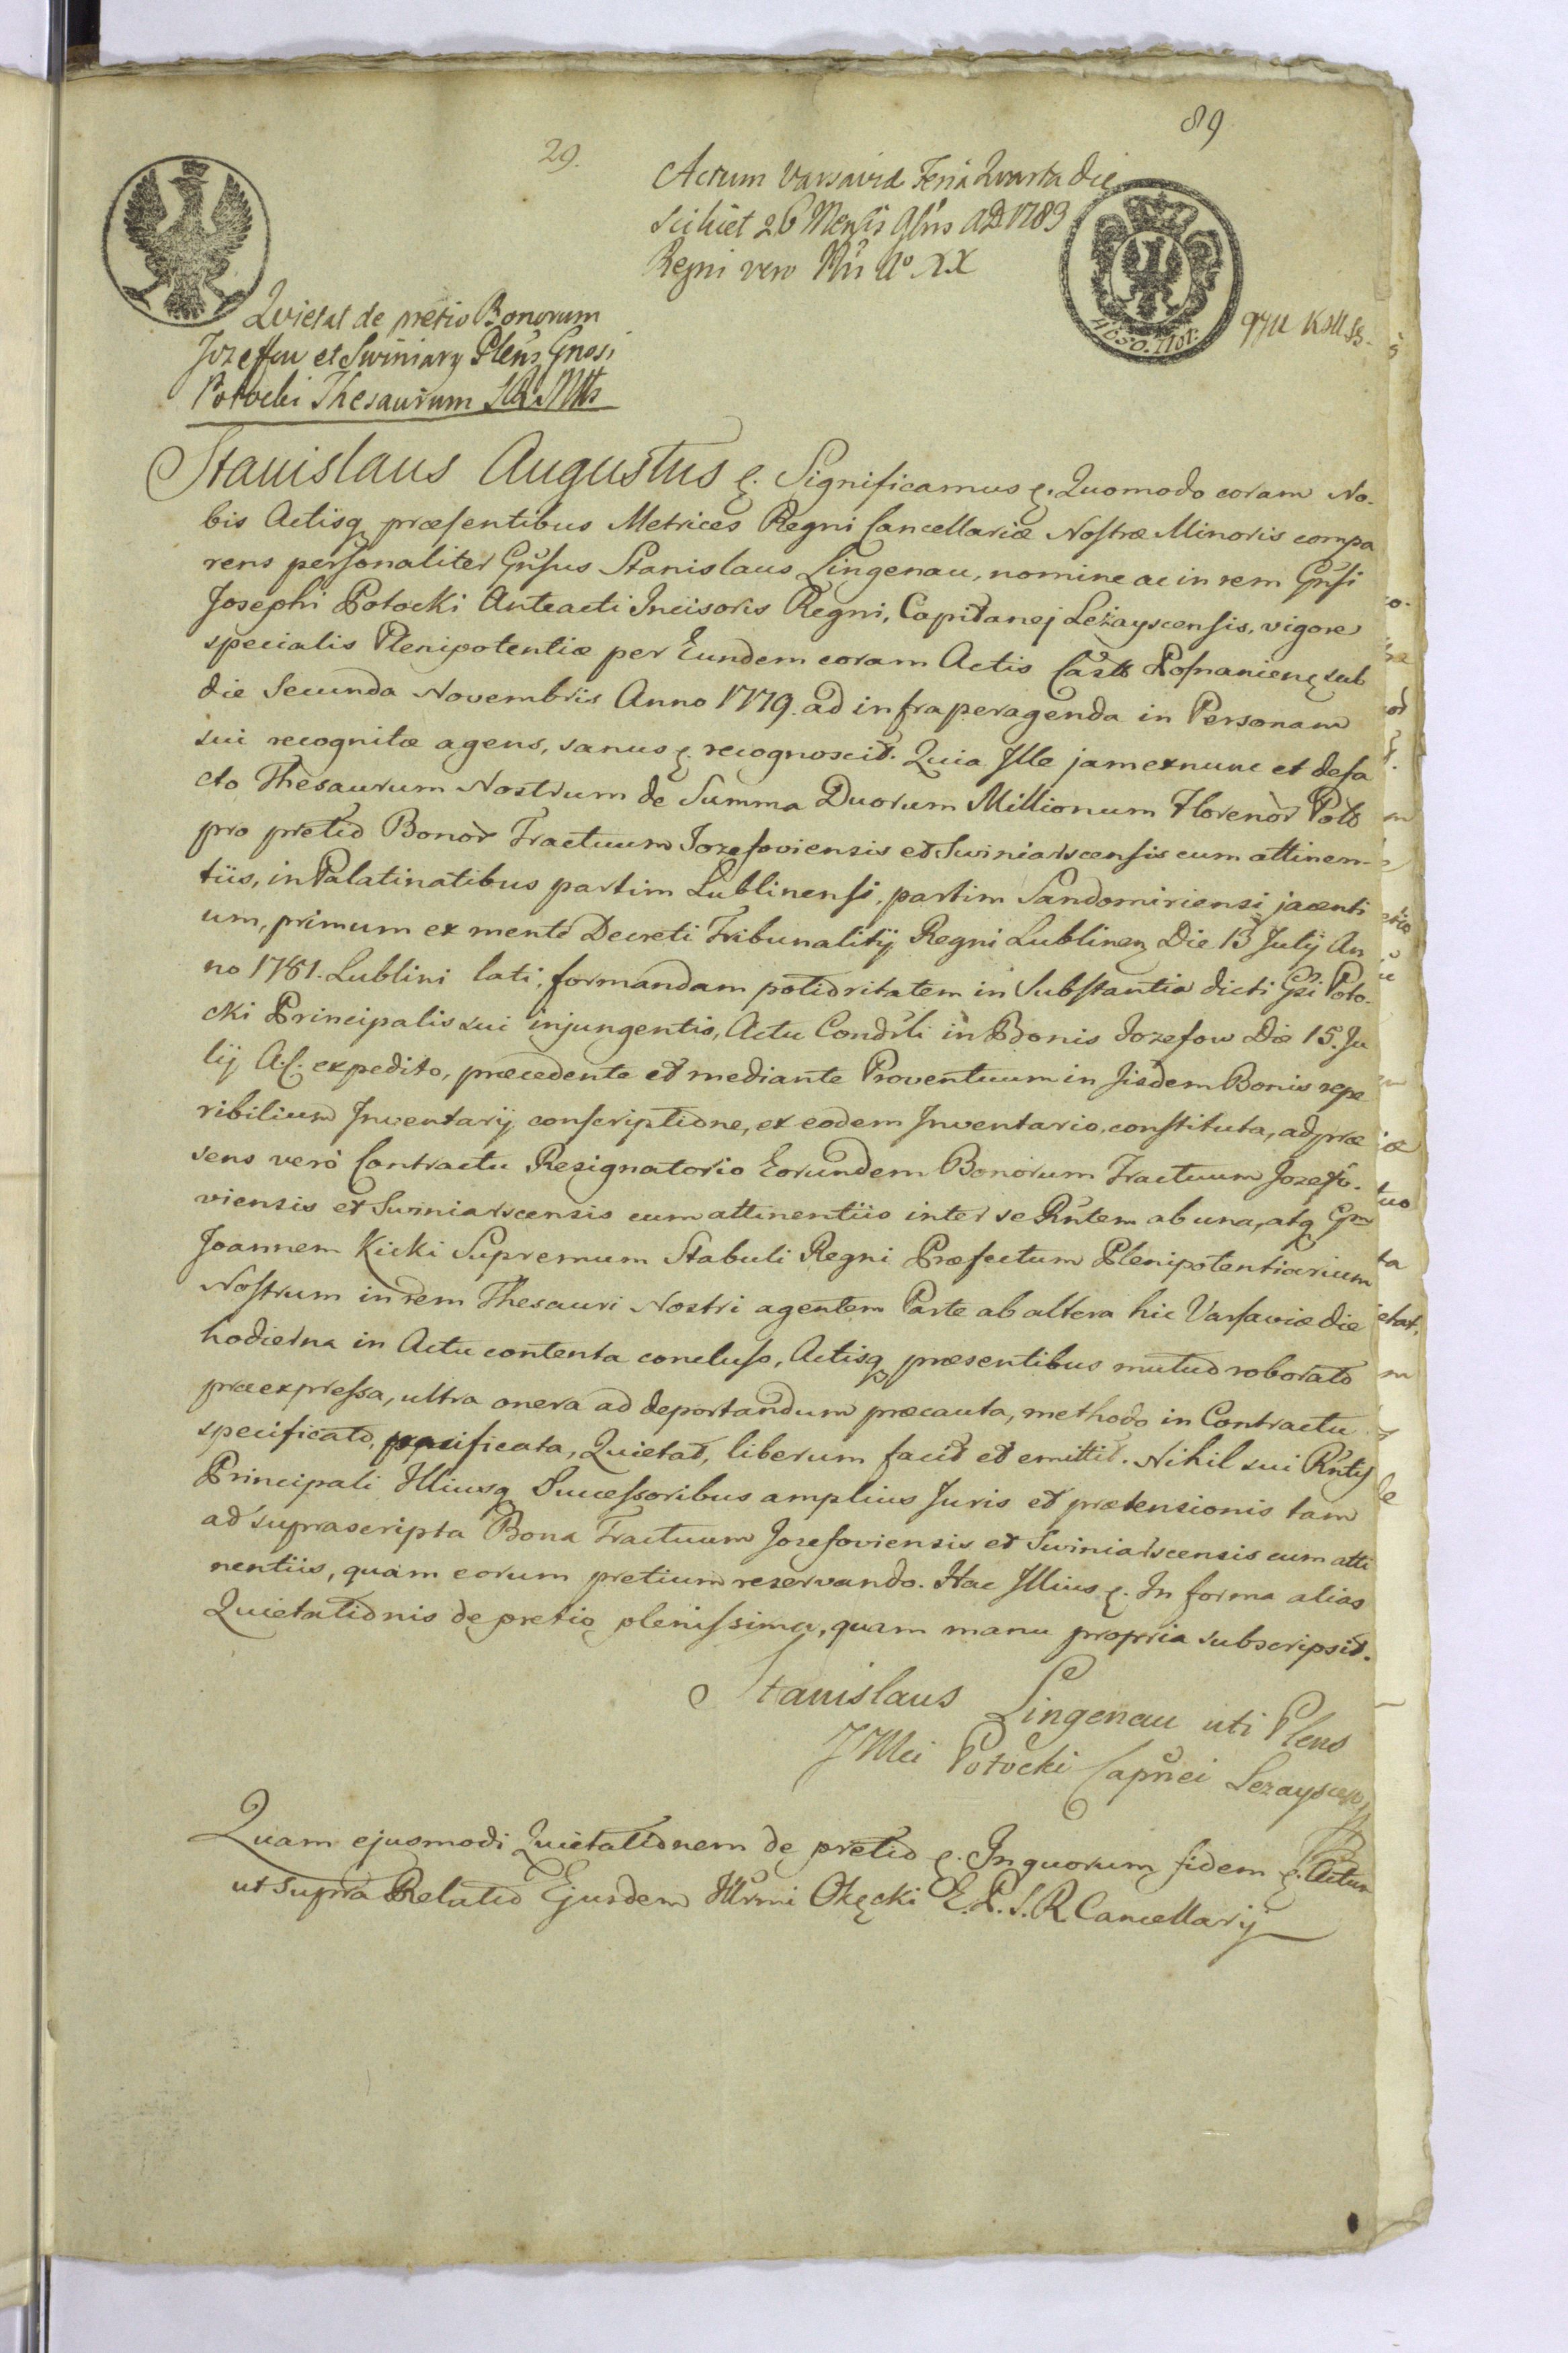 89
29.
Actum Varsaviæ Feria Quarta die
scilicet 26 Mensis 9bris AD 1783
Regni vero Nri Ao XX
4 GR. O. ZŁOT.
Quietat de pretio Bonorum
Jozeffow et Swiniary Plens Gnosi
Potocki Thesaurum SRMtis
Stanislaus Augustus &. Significamus &. Quomodo coram No-
bis Actisq præsentibus Metrices Regni Cancellariæ Nostræ Minoris compa
rens personaliter Gnsus Stanislaus Lingenau, nomine ac in rem Gnsi
Josephi Potocki Anteacti Incisoris Regni, Capitanej Leżayscensis, vigore
specialis Plenipotentiæ per Eundem coram Actis Castr Posnaniens sub
die Secunda Novembris Anno 1779. ad infraperagenda in Personam
sui recognitæ agens, sanus &. recognoscit. Quia Ille jam ex nunc et defa
cto Thesaurum Nostrum de Summa Duorum Millionum Florenor Polo
pro pretio Bonor Tractuum Jozefoviensis et Swiniarscensis cum attinen-
tiis, in Palatinatibus partim Lublinensi, partim Sandomiriensi jacenti
um, primum ex mente Decreti Tribunalitij Regni Lublinen Die 13 Julij An
no 1781. Lublini lati, formandam potioritatem in Substantia dicti Gsi Poto-
cki Principalis sui injungentis, Actu Condsti in Bonis Jozefow Die 15. Ju
lij A.C. expedito, præcedente et mediante Proventuum in Jisdem Bonis repe
ribilium Inventarij conscriptione, ex eodem Inventario, constituta, ad præ
sens verò Contractu Resignatorio Eorundem Bonorum Tractuum Jozefo-
viensis et Swiniarscensis cum attinentiis inter se Rntem ab una, atq Gm
Joannem Kicki Supremum Stabuli Regni Præfectum Plenipotentiarium
Nostrum in rem Thesauri Nostri agentem Parte ab altera hic Varsaviæ die
hodierna in Actu contenta concluso, Actisq præsentibus mutuo roborato
præexpressa, ultra onera ad deportandum præcauta, methodo in Contractu
specificato, pacificata, Quietat, liberum facit et emittit. Nihil sui Rntis
Principali Illiusq Successoribus amplius Juris et prætensionis tam
ad suprascripta Bona Tractuum Jozefoviensis et Swiniarscensis cum atti
nentiis, quam eorum pretium reservando. Hac Illius &. In forma alias
Quietationis de pretio plenissima, quam manu propria subscripsit.
Stanislaus Lingenau uti Plens
JMci Potocki Capnei Lezayscen,
Quam ejusmodi Quietationem de pretio &. In quorum fidem &. Actum
ut supra Relatio Ejusdem Illrmi Okęcki E. P. S. R. Cancellarij